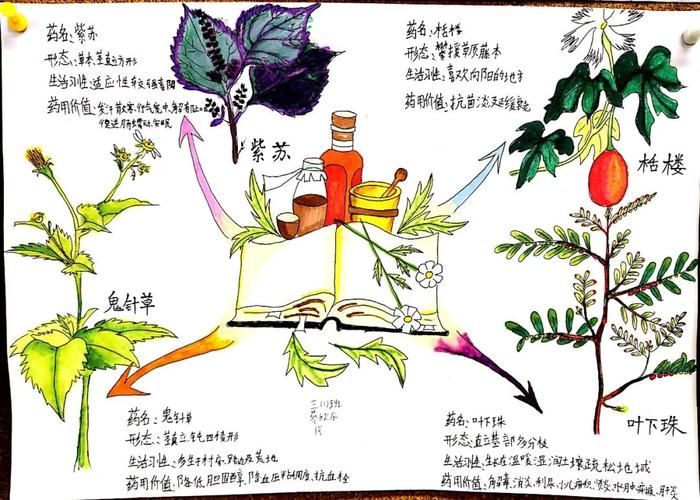 药名:紫苏
形态:草本茎直立方形
生活习性:适应性较强喜阴
药用价值:发汗散寒
促进肠蠕动
紫苏
药名:栝楼
形态:攀援草质藤本
生活习性:喜欢向阳的地方
药用价值:抗菌淡及延缓衰老
栝楼
鬼针草
药名:鬼针草
形态:茎直立,钝四棱形
生活习性:多生于村旁、路边及荒地
药用价值:降低胆固醇,降血压粘稠度,抗血栓
三(1)班
药名:叶下珠
形态:直立基部多分枝
生活习性:生长在温暖湿润土壤疏松地域
药用价值:解毒,消炎,利尿,小儿疳积,肾炎,水肿
叶下珠